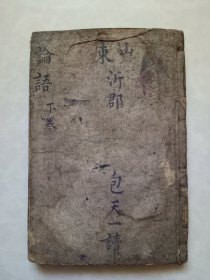 山東
沂郡
包天一讀
論語
下卷